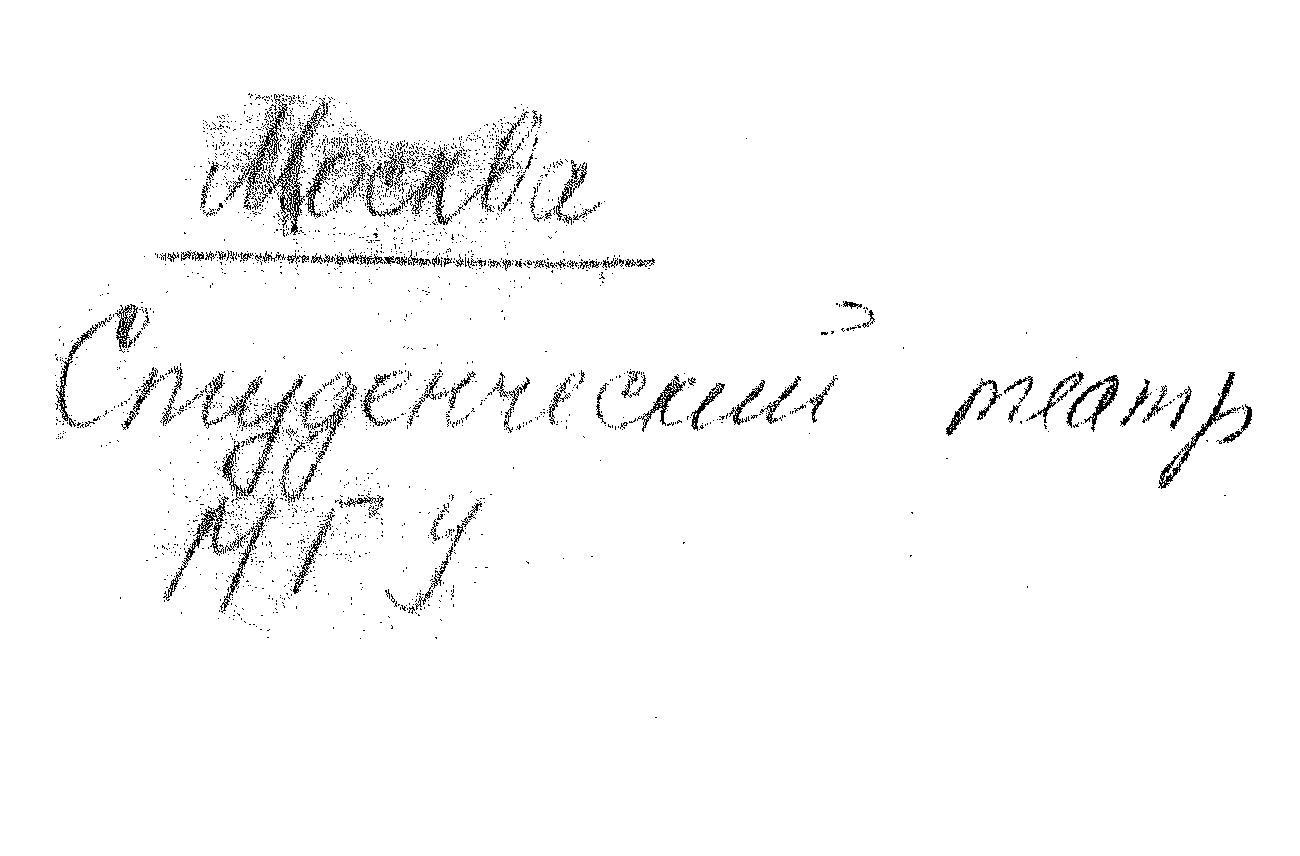 Москва
Студенческий театр
МГУ